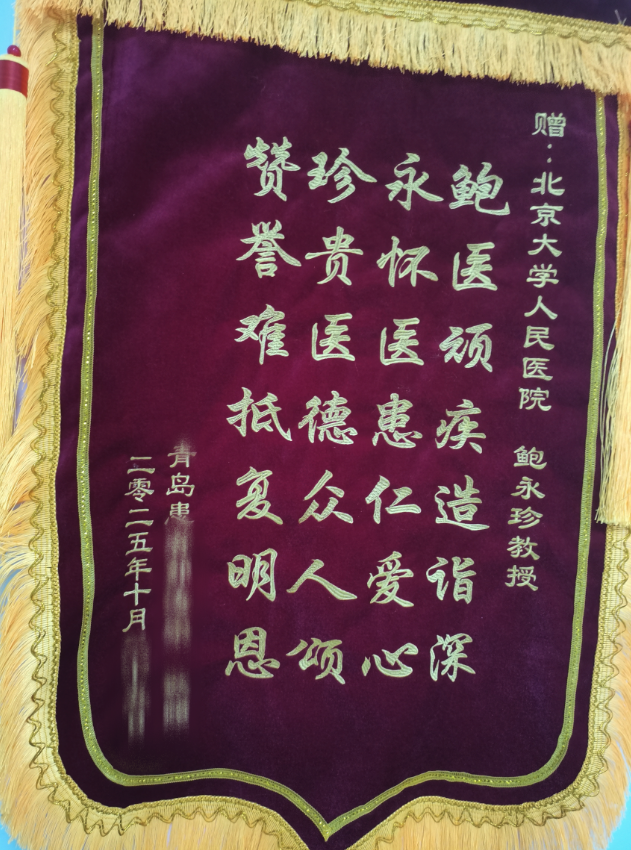 赠：北京大学人民医院 鲍永珍教授
鲍医顽疾造诣深
永怀医患仁爱心
珍贵医德众人颂
赞誉难抵复明恩
青岛患
二零二五年十月